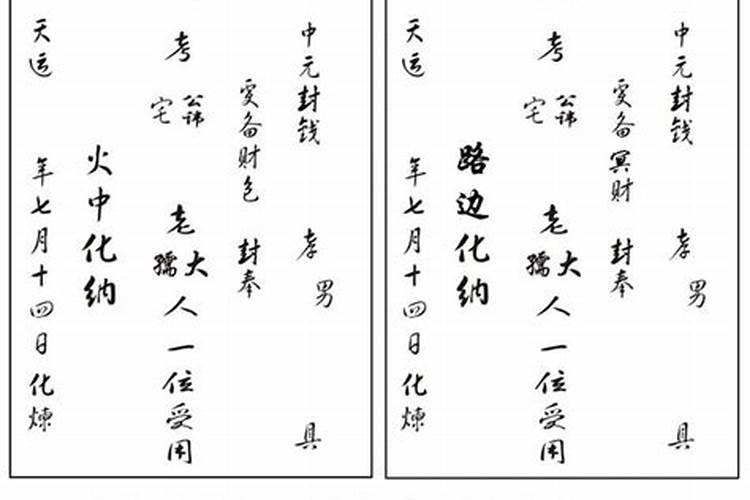 中元封钱 孝男 具
爰备冥财 封奉
考 公讳宅 老大孺人一位受用
路边化纳
天运 年七月十四日化煉
中元封钱 孝男 具
爰备财包 封奉
考 公讳宅 老大孺人一位受用
火中化纳
天运 年七月十四日化煉